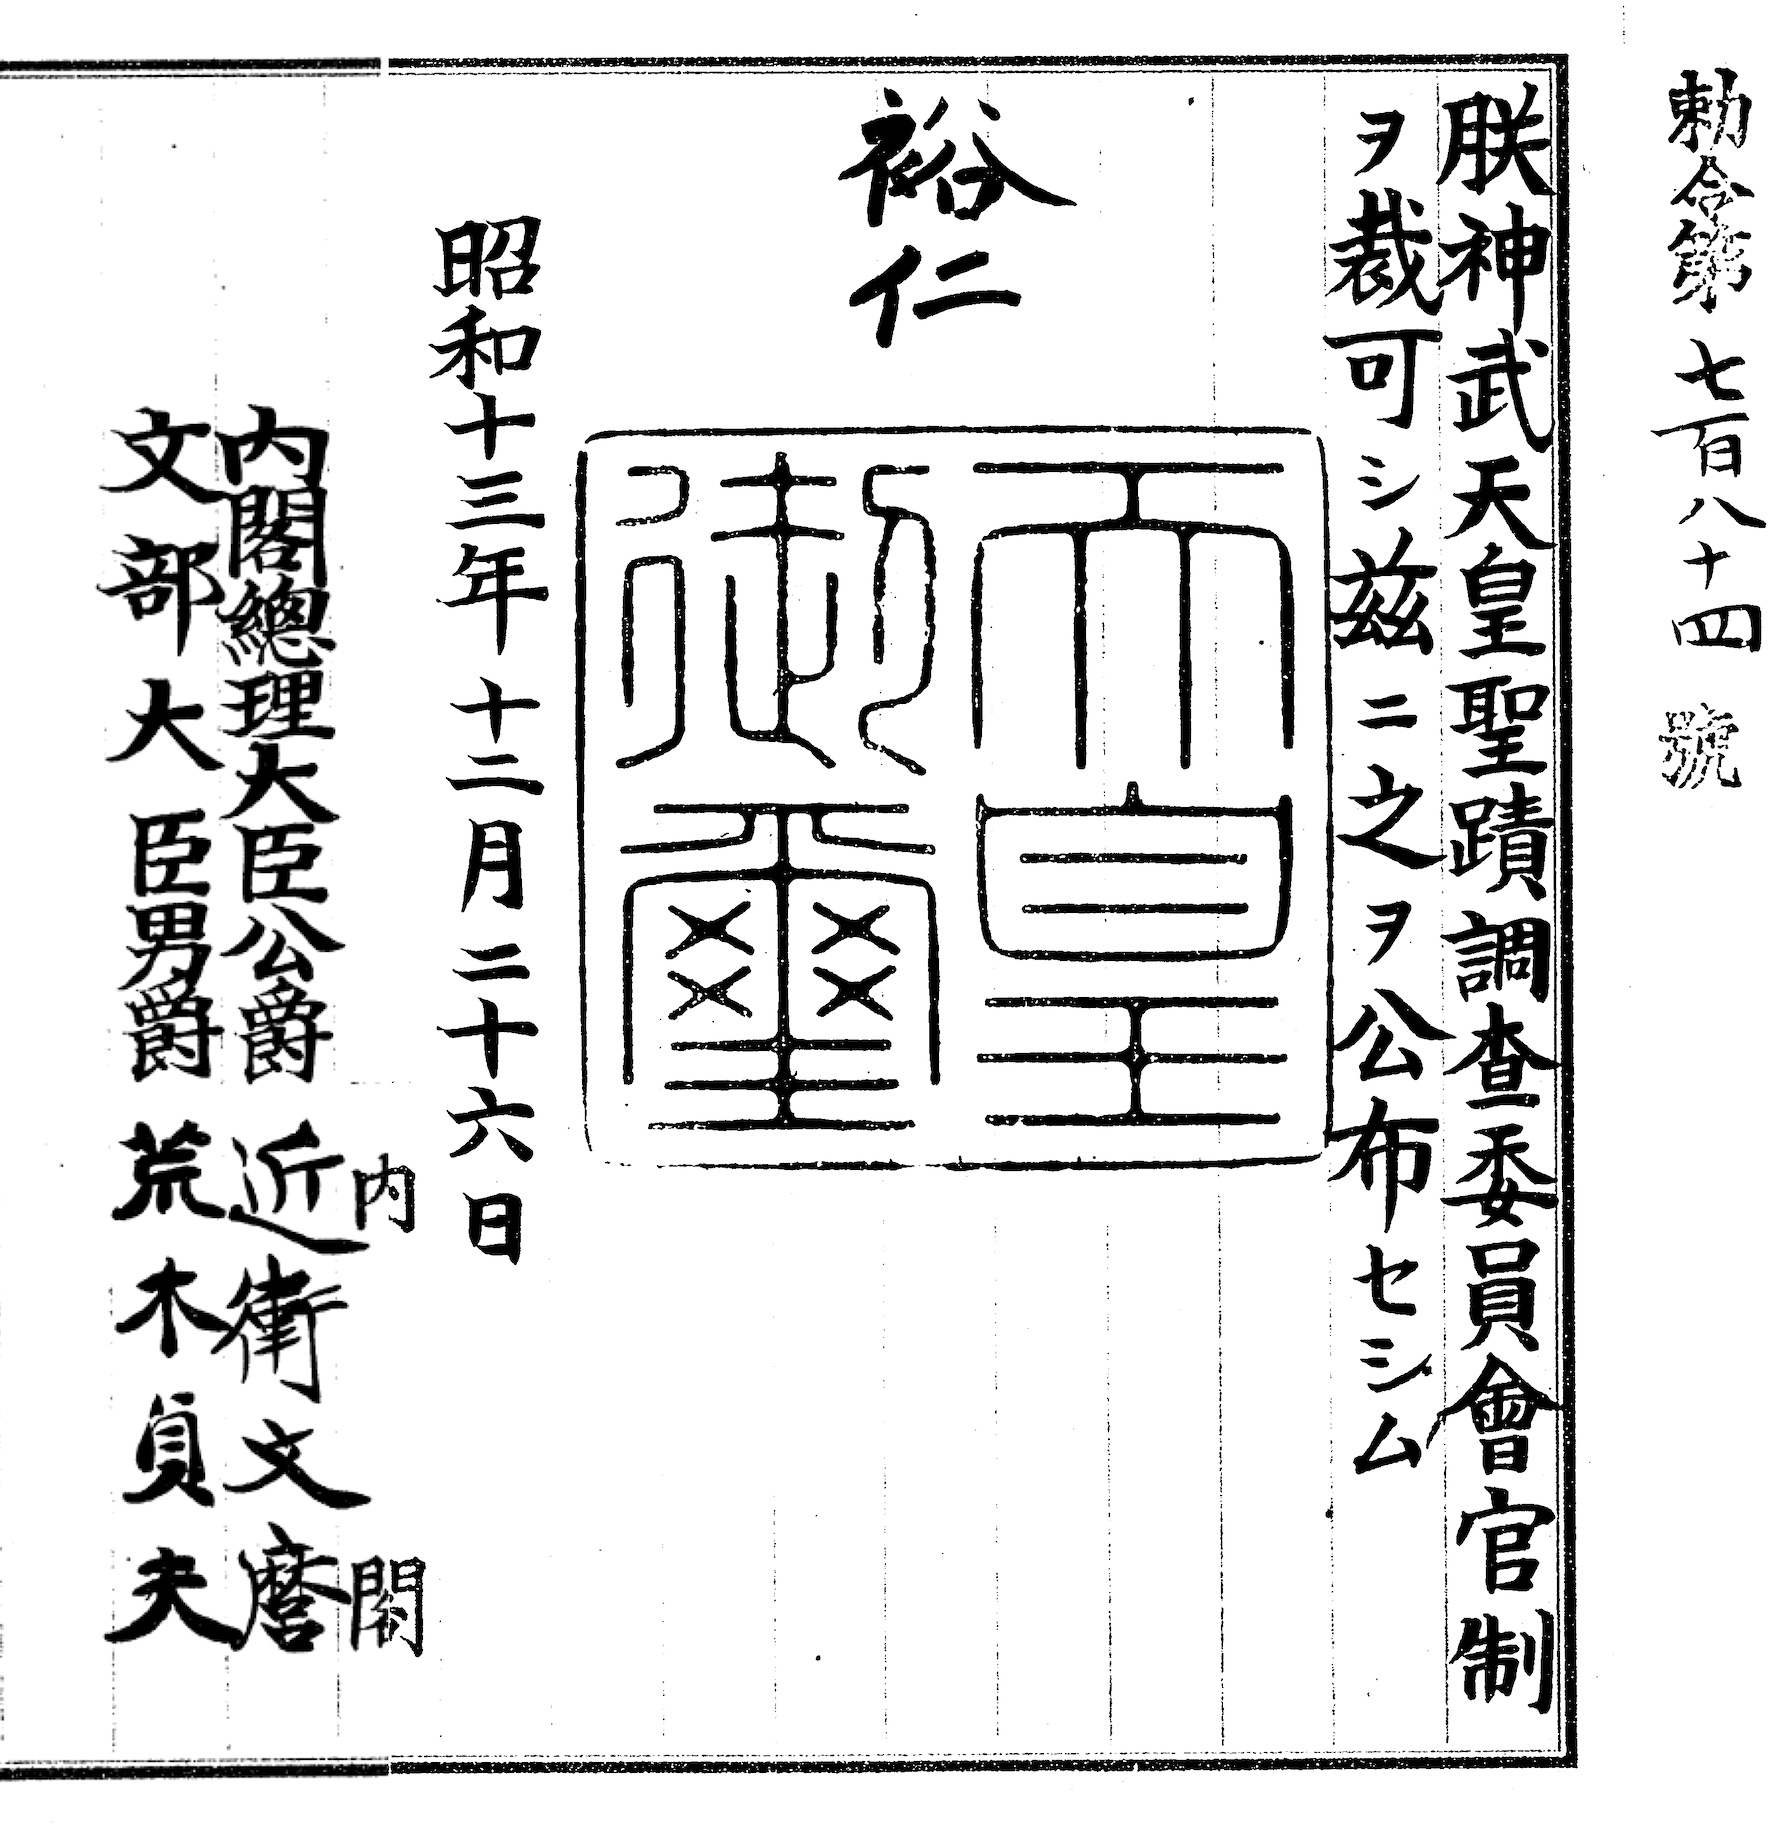 勅令第七百八十四號
朕神武天皇聖蹟調査委員會官制
ヲ裁可シ茲ニ之ヲ公布セシム
裕仁
天皇
御璽
昭和十三年十二月二十六日
內閣
內閣總理大臣公爵 近衞文麿
文部大臣男爵 荒木貞夫